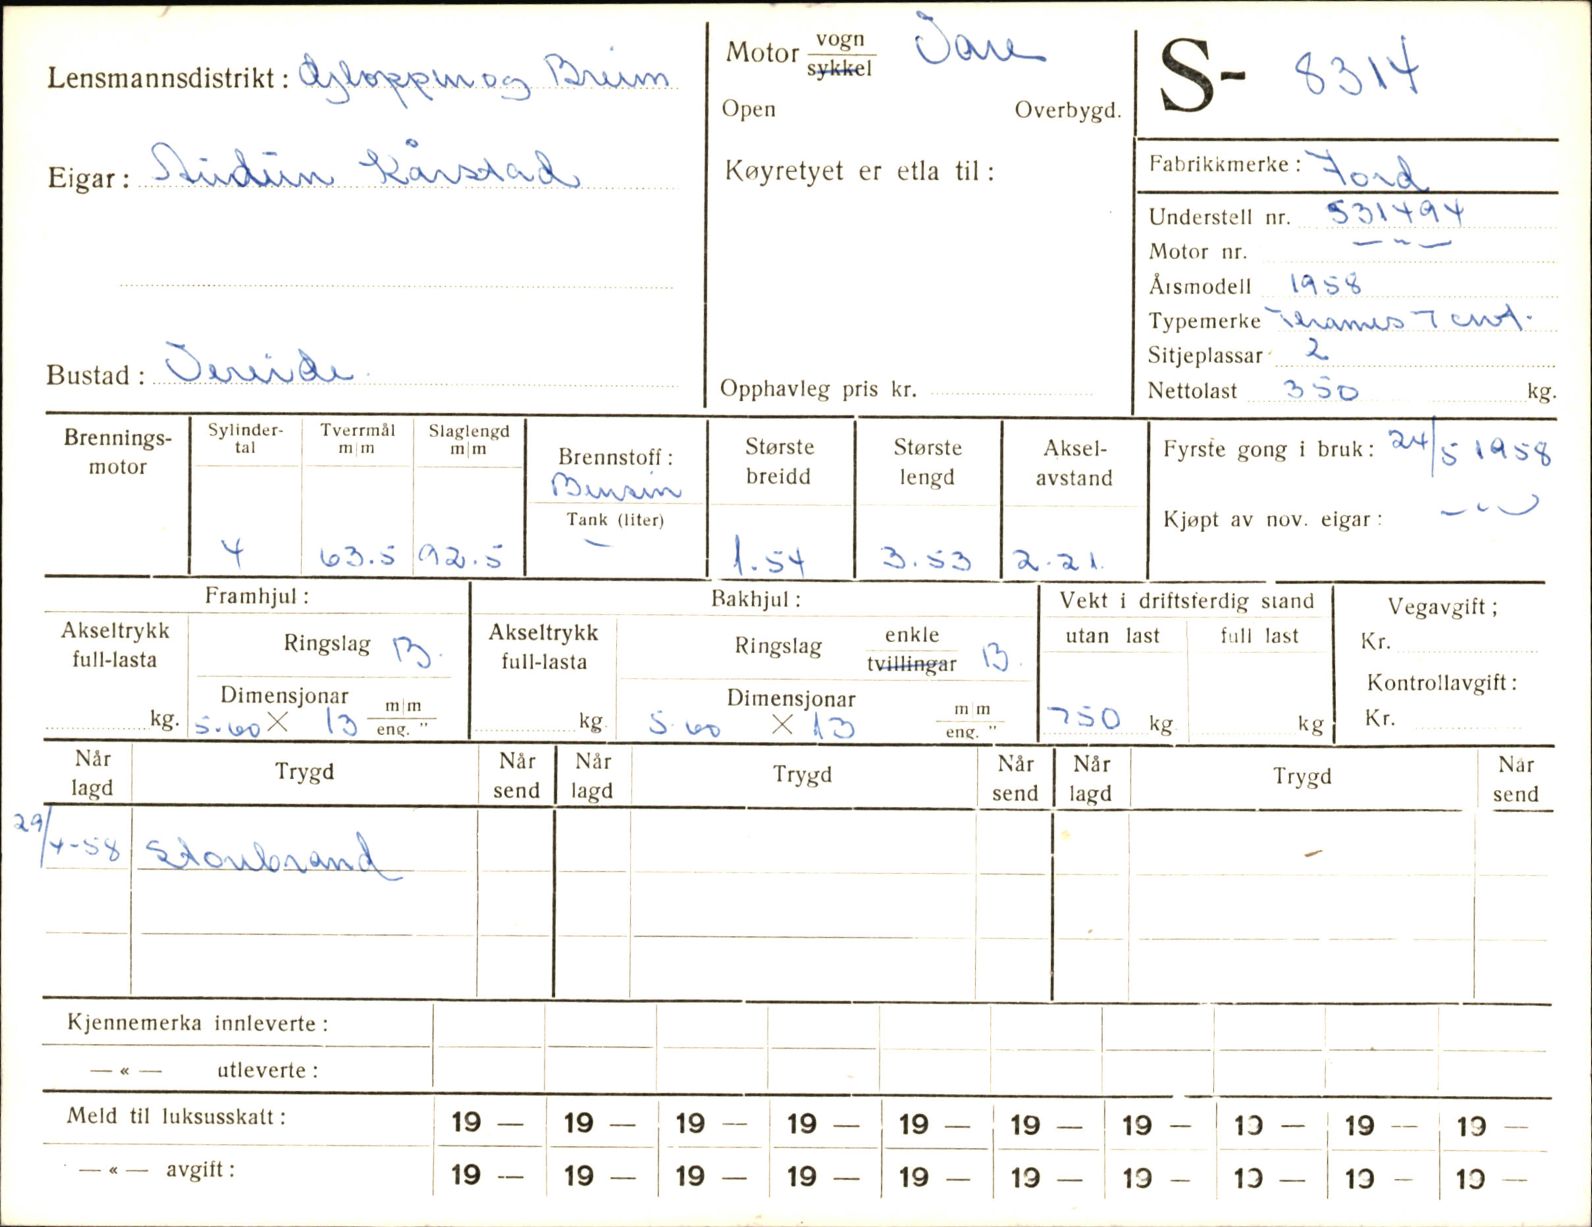 Lensmannsdistrikt: Gloppen og Breim
Eigar: Audun Kårstad
Bustad: Vereide
Motor vogn sykkel Vare
Open Overbygd.
Køyretyet er etla til:
Opphavleg pris kr.
S- 8314
Fabrikkmerke: Ford
Understell nr. 531494
Motor nr. — " —
Årsmodell 1958
Typemerke Thames 7 cwt.
Sitjeplassar 2
Nettolast 350 kg.
Brennings-motor
Sylinder-tal 4
Tverrmål m|m 63.5
Slaglengd m|m 92.5
Brennstoff: Bensin
Tank (liter) —
Største breidd 1.54
Største lengd 3.53
Aksel-avstand 2.21
Fyrste gong i bruk: 24/5 1958
Kjøpt av nov. eigar: — " —
Framhjul:
Akseltrykk full-lasta kg.
Ringslag B.
Dimensjonar 5.60 X 13 m|m eng. "
Bakhjul:
Akseltrykk full-lasta kg.
Ringslag enkle tvillingar B.
Dimensjonar 5.60 X 13 m|m eng. "
Vekt i driftsferdig stand
utan last 750 kg
full last kg
Vegavgift;
Kr.
Kontrollavgift:
Kr.
Når lagd Trygd Når send Når lagd Trygd Når send Når lagd Trygd Når send
29/4-58 Storebrand
Kjennemerka innleverte:
— « — utleverte:
Meld til luksusskatt: 19 — 19 — 19 — 19 — 19 — 19 — 19 — 19 — 19 — 19 —
— « — avgift: 19 — 19 — 19 — 19 — 19 — 19 — 19 — 19 — 19 — 19 —